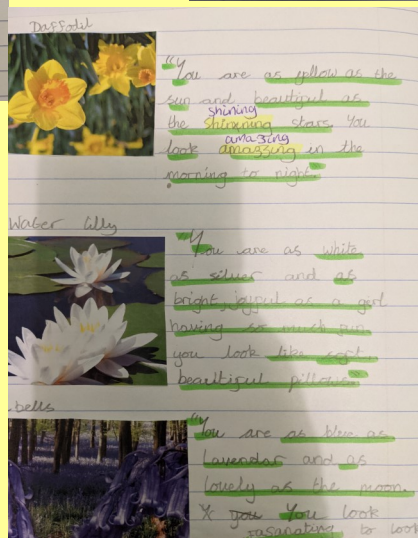 Daffodil
"You are as yellow as the
sun and beautiful as
shining
the shinining stars You
amazing
look amazzing in the
morning to night."
Water lilly
"You are as white
as silver and as
bright, joyful as a girl
having so much fun
you look like soft,
beautiful pillows."
bells
"You are as blue as
Lavendar and as
lovely as the moon.
you You look
fasanating to look